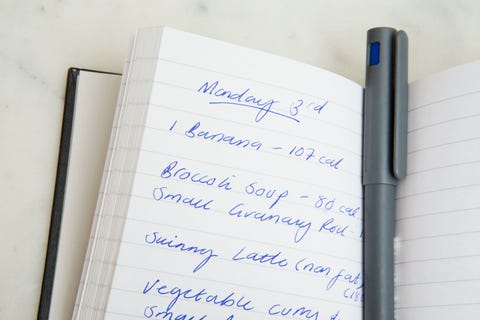 Monday 3rd
1 Banana - 107 cal
Broccoli Soup - 80 cal
Small Granary Roll -
Skinny Latte (non fat)
Vegetable curry &
Small